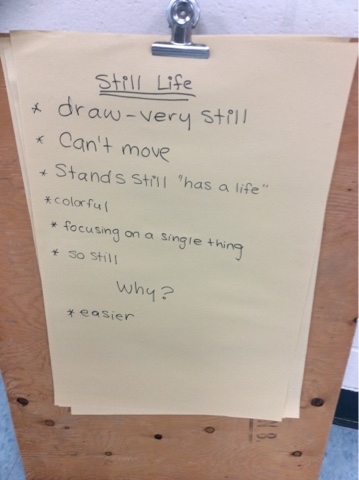 Still Life
* draw-very still
* Can't move
* Stands still "has a life"
* colorful
* focusing on a single thing
* so still
Why?
* easier